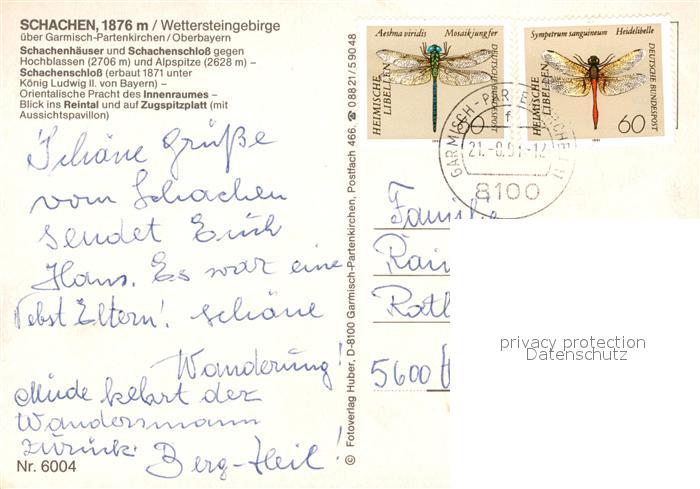 SCHACHEN, 1876 m / Wettersteingebirge
über Garmisch-Partenkirchen/Oberbayern
Schachenhäuser und Schachenschloß gegen
Hochblassen (2706 m) und Alpspitze (2628 m) –
Schachenschloß (erbaut 1871 unter
König Ludwig II. von Bayern) –
Orientalische Pracht des Innenraumes –
Blick ins Reintal und auf Zugspitzplatt (mit
Aussichtspavillon)
Schöne Grüße
vom Schachen
sendet Euch
Hans. Es war eine
Nebst Eltern! schöne
Wanderung!
Müde kehrt der
Wandersmann
zurück. Berg-Heil!
Nr. 6004
© Fotoverlag Huber, D-8100 Garmisch-Partenkirchen, Postfach 466, ☎ 0 88 21/5 90 48
Aeshna viridis Mosaikjungfer
HEIMISCHE
LIBELLEN
DEUTSCHE BUNDESPOST
60
1991
Sympetrum sanguineum Heidelibelle
HEIMISCHE
LIBELLEN
DEUTSCHE BUNDESPOST
60
1991
GARMISCH-PARTENKIRCHEN
f
8100
Familie
Rain
Rath
5600
privacy protection
Datenschutz